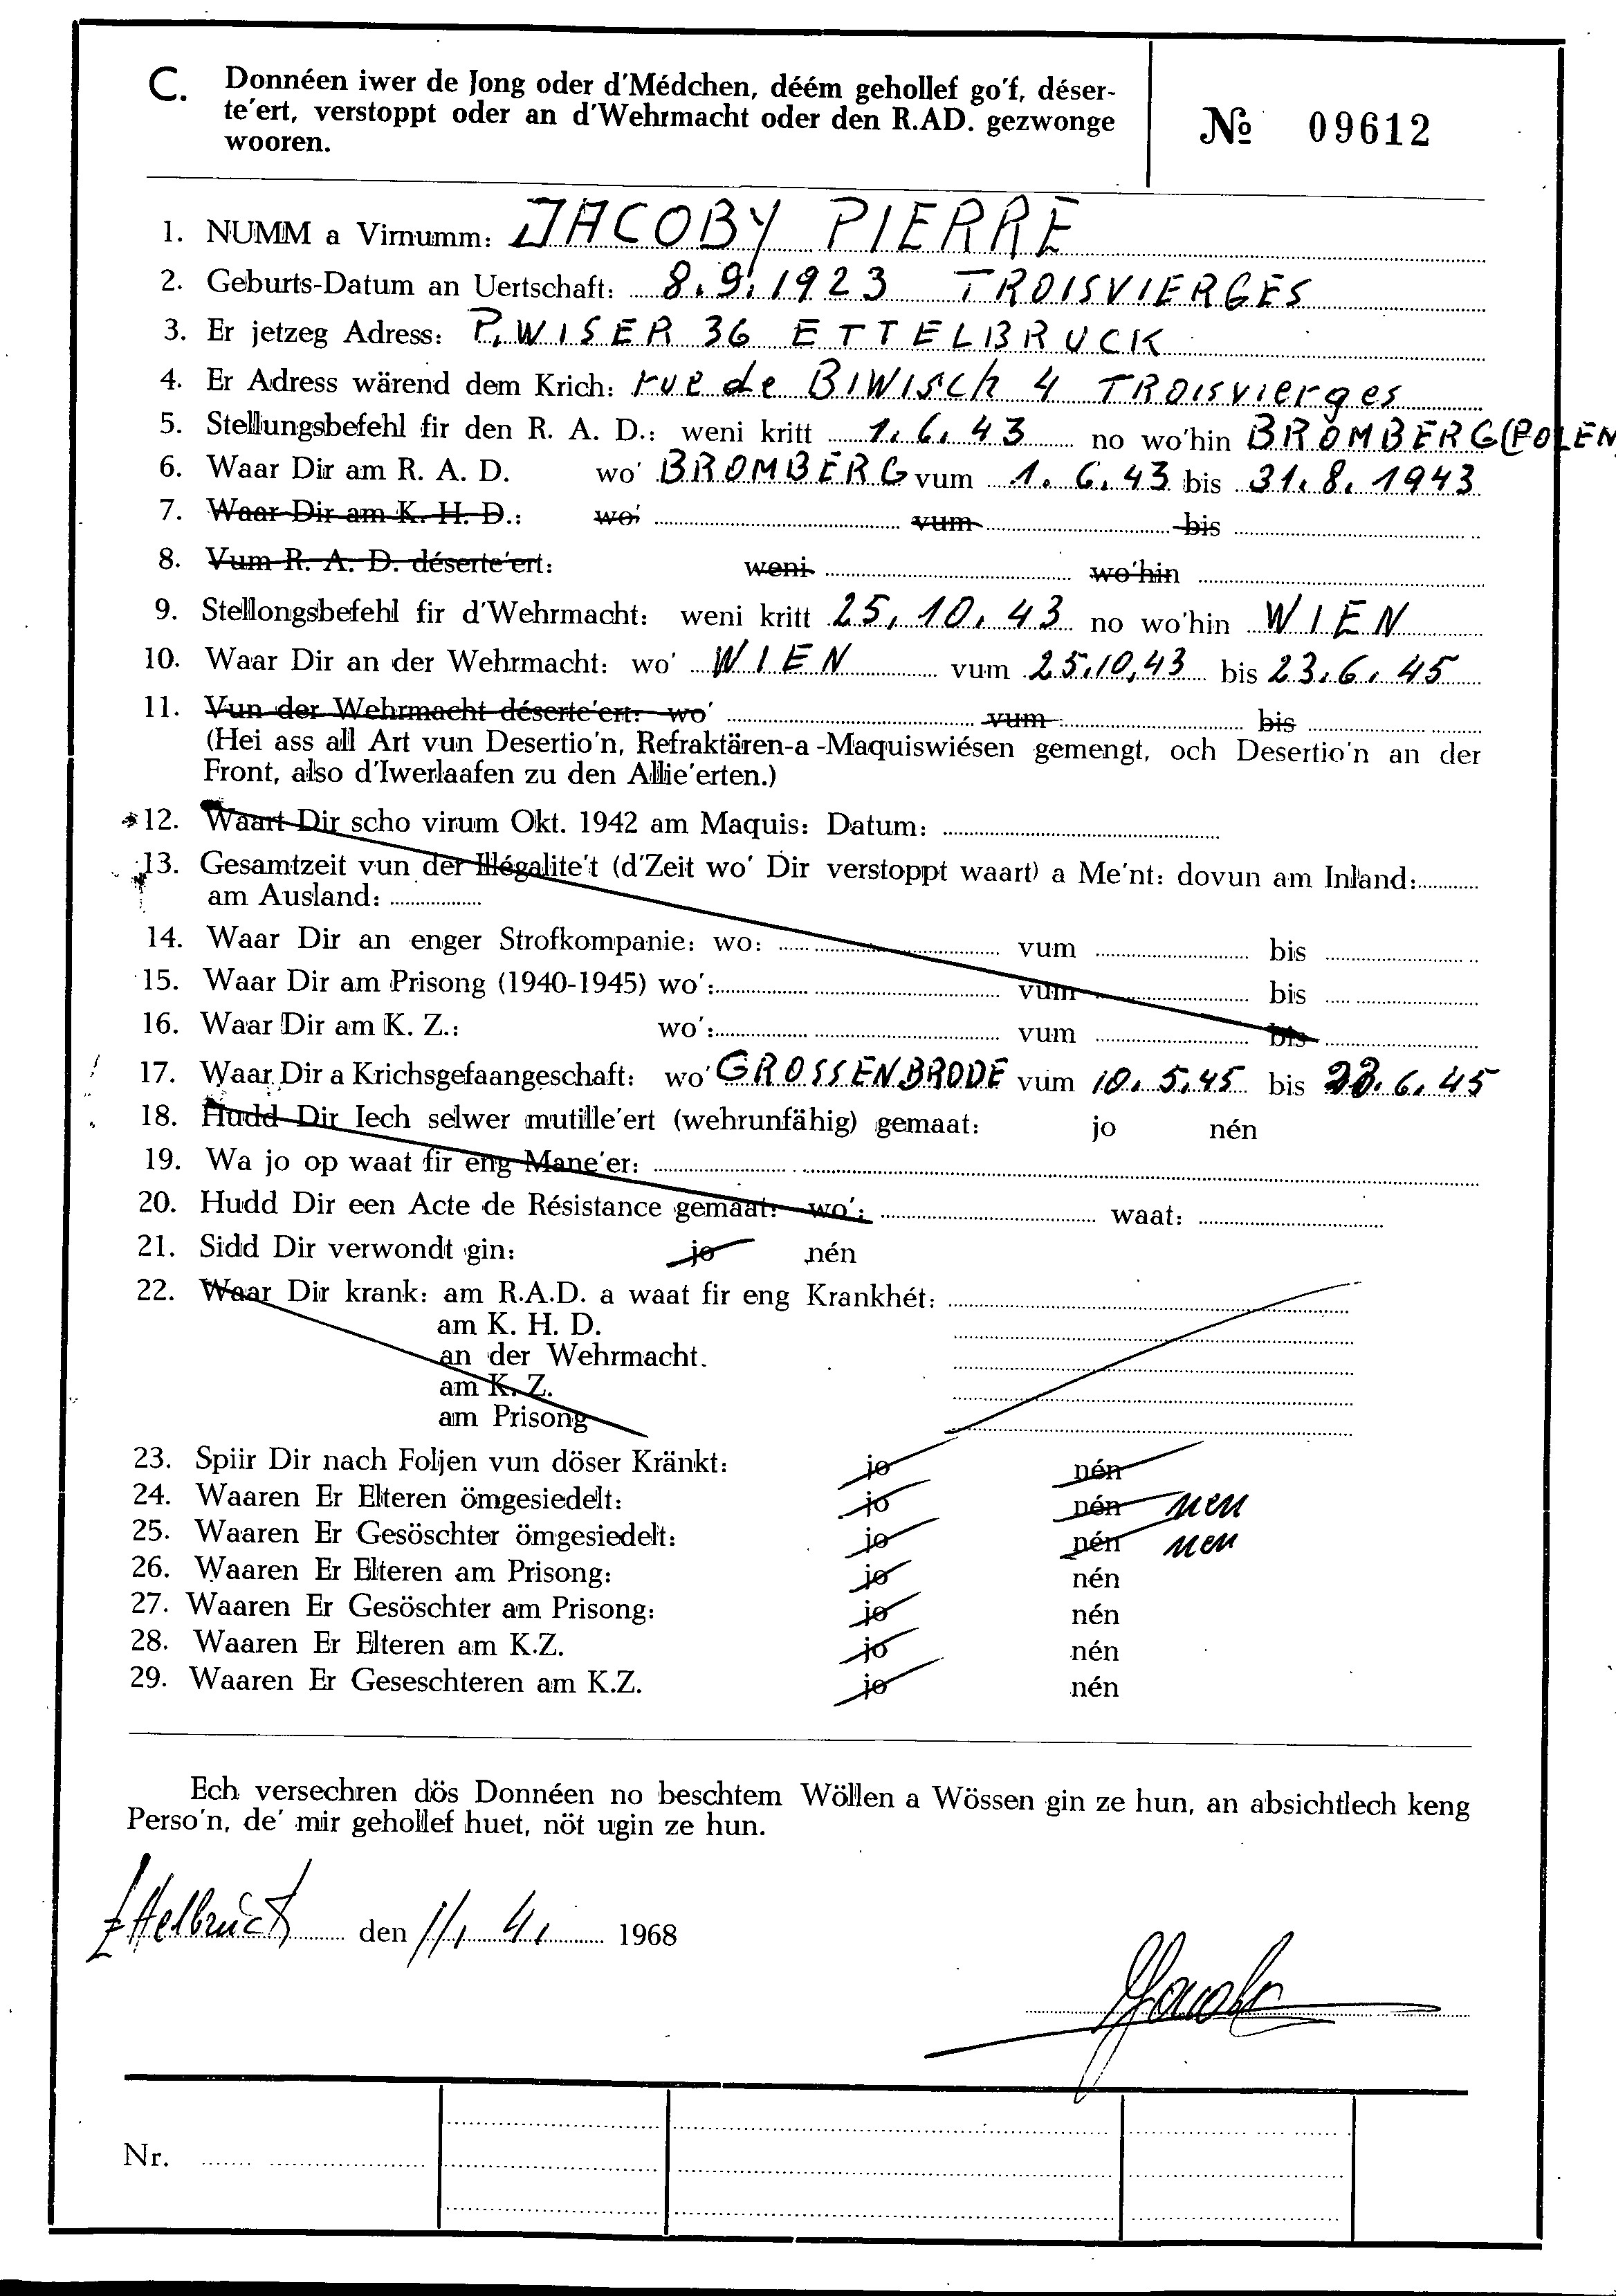 C. Donnéen iwer de Jong oder d'Médchen, déém gehollef go'f, déser-
te'ert, verstoppt oder an d'Wehrmacht oder den R.AD. gezwonge
wooren.
№ 09612
1. NUMM a Virnumm: JACOBY PIERRE
2. Geburts-Datum an Uertschaft: 8.9.1923 TROISVIERGES
3. Er jetzeg Adress: P. WISER 36 ETTELBRUCK
4. Er Adress wärend dem Krich: rue de BIWISCH 4 TROISVIERGES
5. Stellungsbefehl fir den R. A. D.: weni kritt 1.6.43 no wo'hin BROMBERG (POLEN)
6. Waar Dir am R. A. D. wo' BROMBERG vum 1.6.43 bis 31.8.1943
7. Waar Dir am K. H. D.: wo' vum bis
8. Vum R. A. D. déserte'ert: weni wo'hin
9. Stellongsbefehl fir d'Wehrmacht: weni kritt 25.10.43 no wo'hin WIEN
10. Waar Dir an der Wehrmacht: wo' WIEN vum 25.10.43 bis 23.6.45
11. Vun der Wehrmacht déserte'ert: wo' vum bis
(Hei ass all Art vun Desertio'n, Refraktären-a-Maquiswiésen gemengt, och Desertio'n an der
Front, also d'Iwerlaafen zu den Allie'erten.)
12. Waart Dir scho virum Okt. 1942 am Maquis: Datum:
13. Gesamtzeit vun der Illégalite't (d'Zeit wo' Dir verstoppt waart) a Me'nt: dovun am Inland:
am Ausland:
14. Waar Dir an enger Strofkompanie: wo: vum bis
15. Waar Dir am Prisong (1940-1945) wo': vum bis
16. Waar Dir am K. Z.: wo': vum bis
17. Waar Dir a Krichsgefaangeschaft: wo' GROSSENBRODE vum 10.5.45 bis 23.6.45
18. Hudd Dir Iech selwer mutille'ert (wehrunfähig) gemaat: jo nén
19. Wa jo op waat fir eng Mane'er:
20. Hudd Dir een Acte de Résistance gemaat: wo': waat:
21. Sidd Dir verwondt gin: jo nén
22. Waar Dir krank: am R.A.D. a waat fir eng Krankhét:
am K. H. D.
an der Wehrmacht.
am K. Z.
am Prisong
23. Spiir Dir nach Foljen vun döser Kränkt: jo nén
24. Waaren Er Elteren ömgesiedelt: jo nén nen
25. Waaren Er Gesöschter ömgesiedelt: jo nén nen
26. Waaren Er Elteren am Prisong: jo nén
27. Waaren Er Gesöschter am Prisong: jo nén
28. Waaren Er Elteren am K.Z. jo nén
29. Waaren Er Geseschteren am K.Z. jo nén
Ech versechren dös Donnéen no beschtem Wöllen a Wössen gin ze hun, an absichtlech keng
Perso'n, de' mir gehollef huet, nöt ugin ze hun.
Ettelbruck den 11. 4. 1968
Nr.